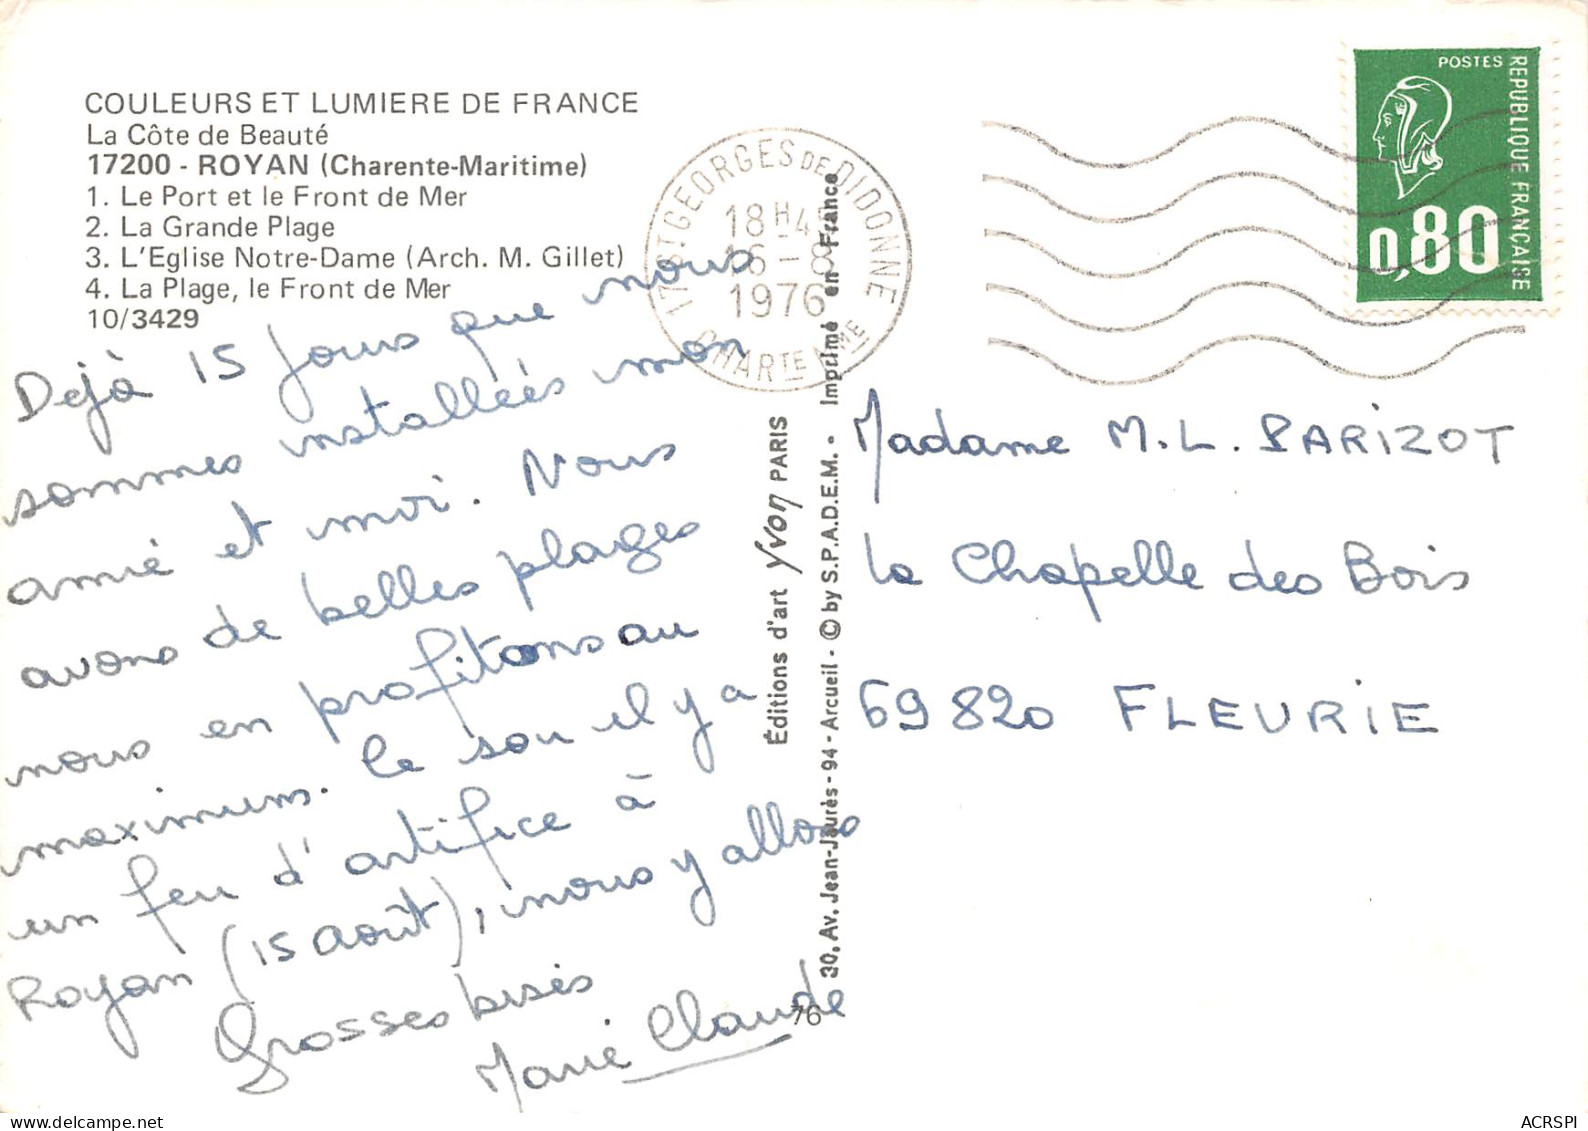 COULEURS ET LUMIERE DE FRANCE
La Côte de Beauté
17200 - ROYAN (Charente-Maritime)
1. Le Port et le Front de Mer
2. La Grande Plage
3. L'Eglise Notre-Dame (Arch. M. Gillet)
4. La Plage, le Front de Mer
10/3429
Dejà 15 jours que nous
sommes installées mon
amie et moi. Nous
avons de belles plages
nous en profitons au
maximum. Ce soir il y a
un feu d'artifice à
Royan (15 août), nous y allons
Grosses bises
Marie Claude
17 ST GEORGES DE DIDONNE
18H4
16-8
1976
CHARTE MME
Éditions d'art Yvon PARIS
30, Av. Jean-Jaurès - 94 - Arcueil - © by S.P.A.D.E.M. - Imprimé en France
76
POSTES
REPUBLIQUE FRANÇAISE
0,80
Madame M.L. PARIZOT
la Chapelle des Bois
69820 FLEURIE
ACRSPI